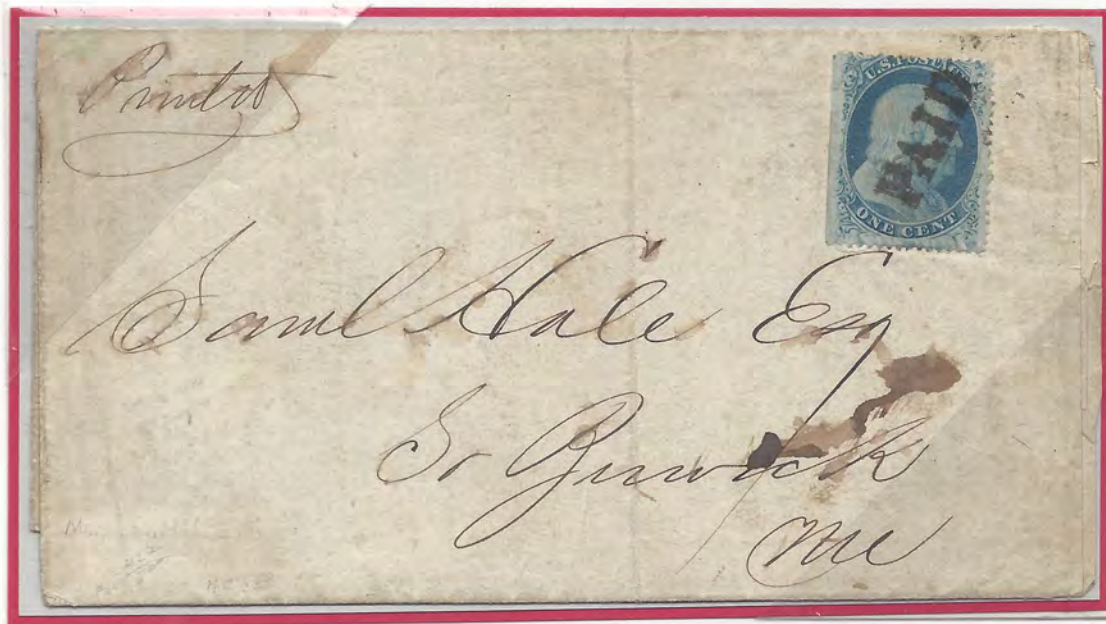 Printed
U.S. POSTAGE
PAID
ONE CENT
Saml Hale Esq
So Berwick
Me